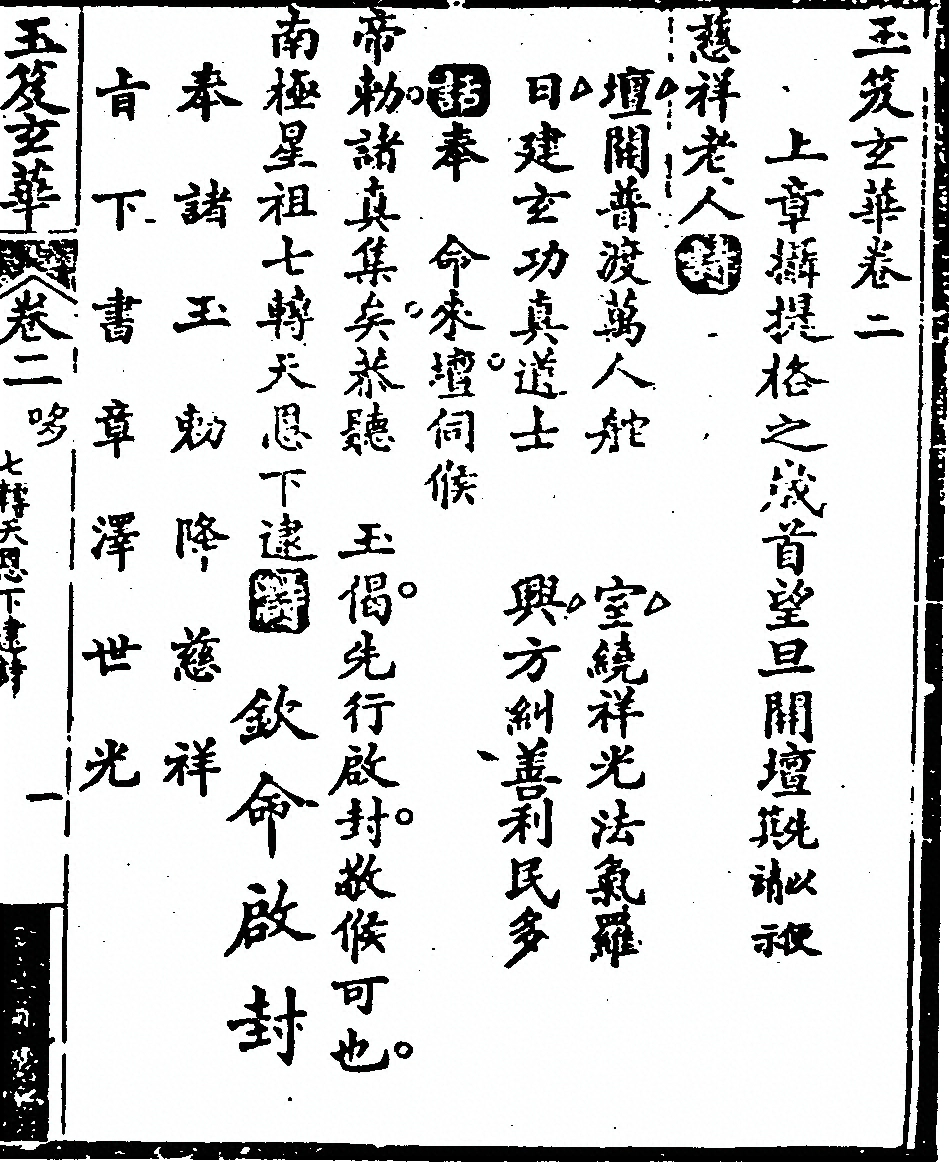 玉笈玄華卷二
上章攝提格之歲首望旦開壇
慈祥老人詩
壇開普渡萬人舵 室繞祥光法氣羅
日建玄功真道士 興方糾善利民多
話奉 命來壇伺候
帝勅諸真集矣恭聽 玉偈先行啟封敬候可也
南極星祖七轉天恩下逮詩 欽命啟封
奉諸玉勅降慈祥
旨下書章澤世光
玉笈玄華 卷二
七轉天恩下逮詩
一